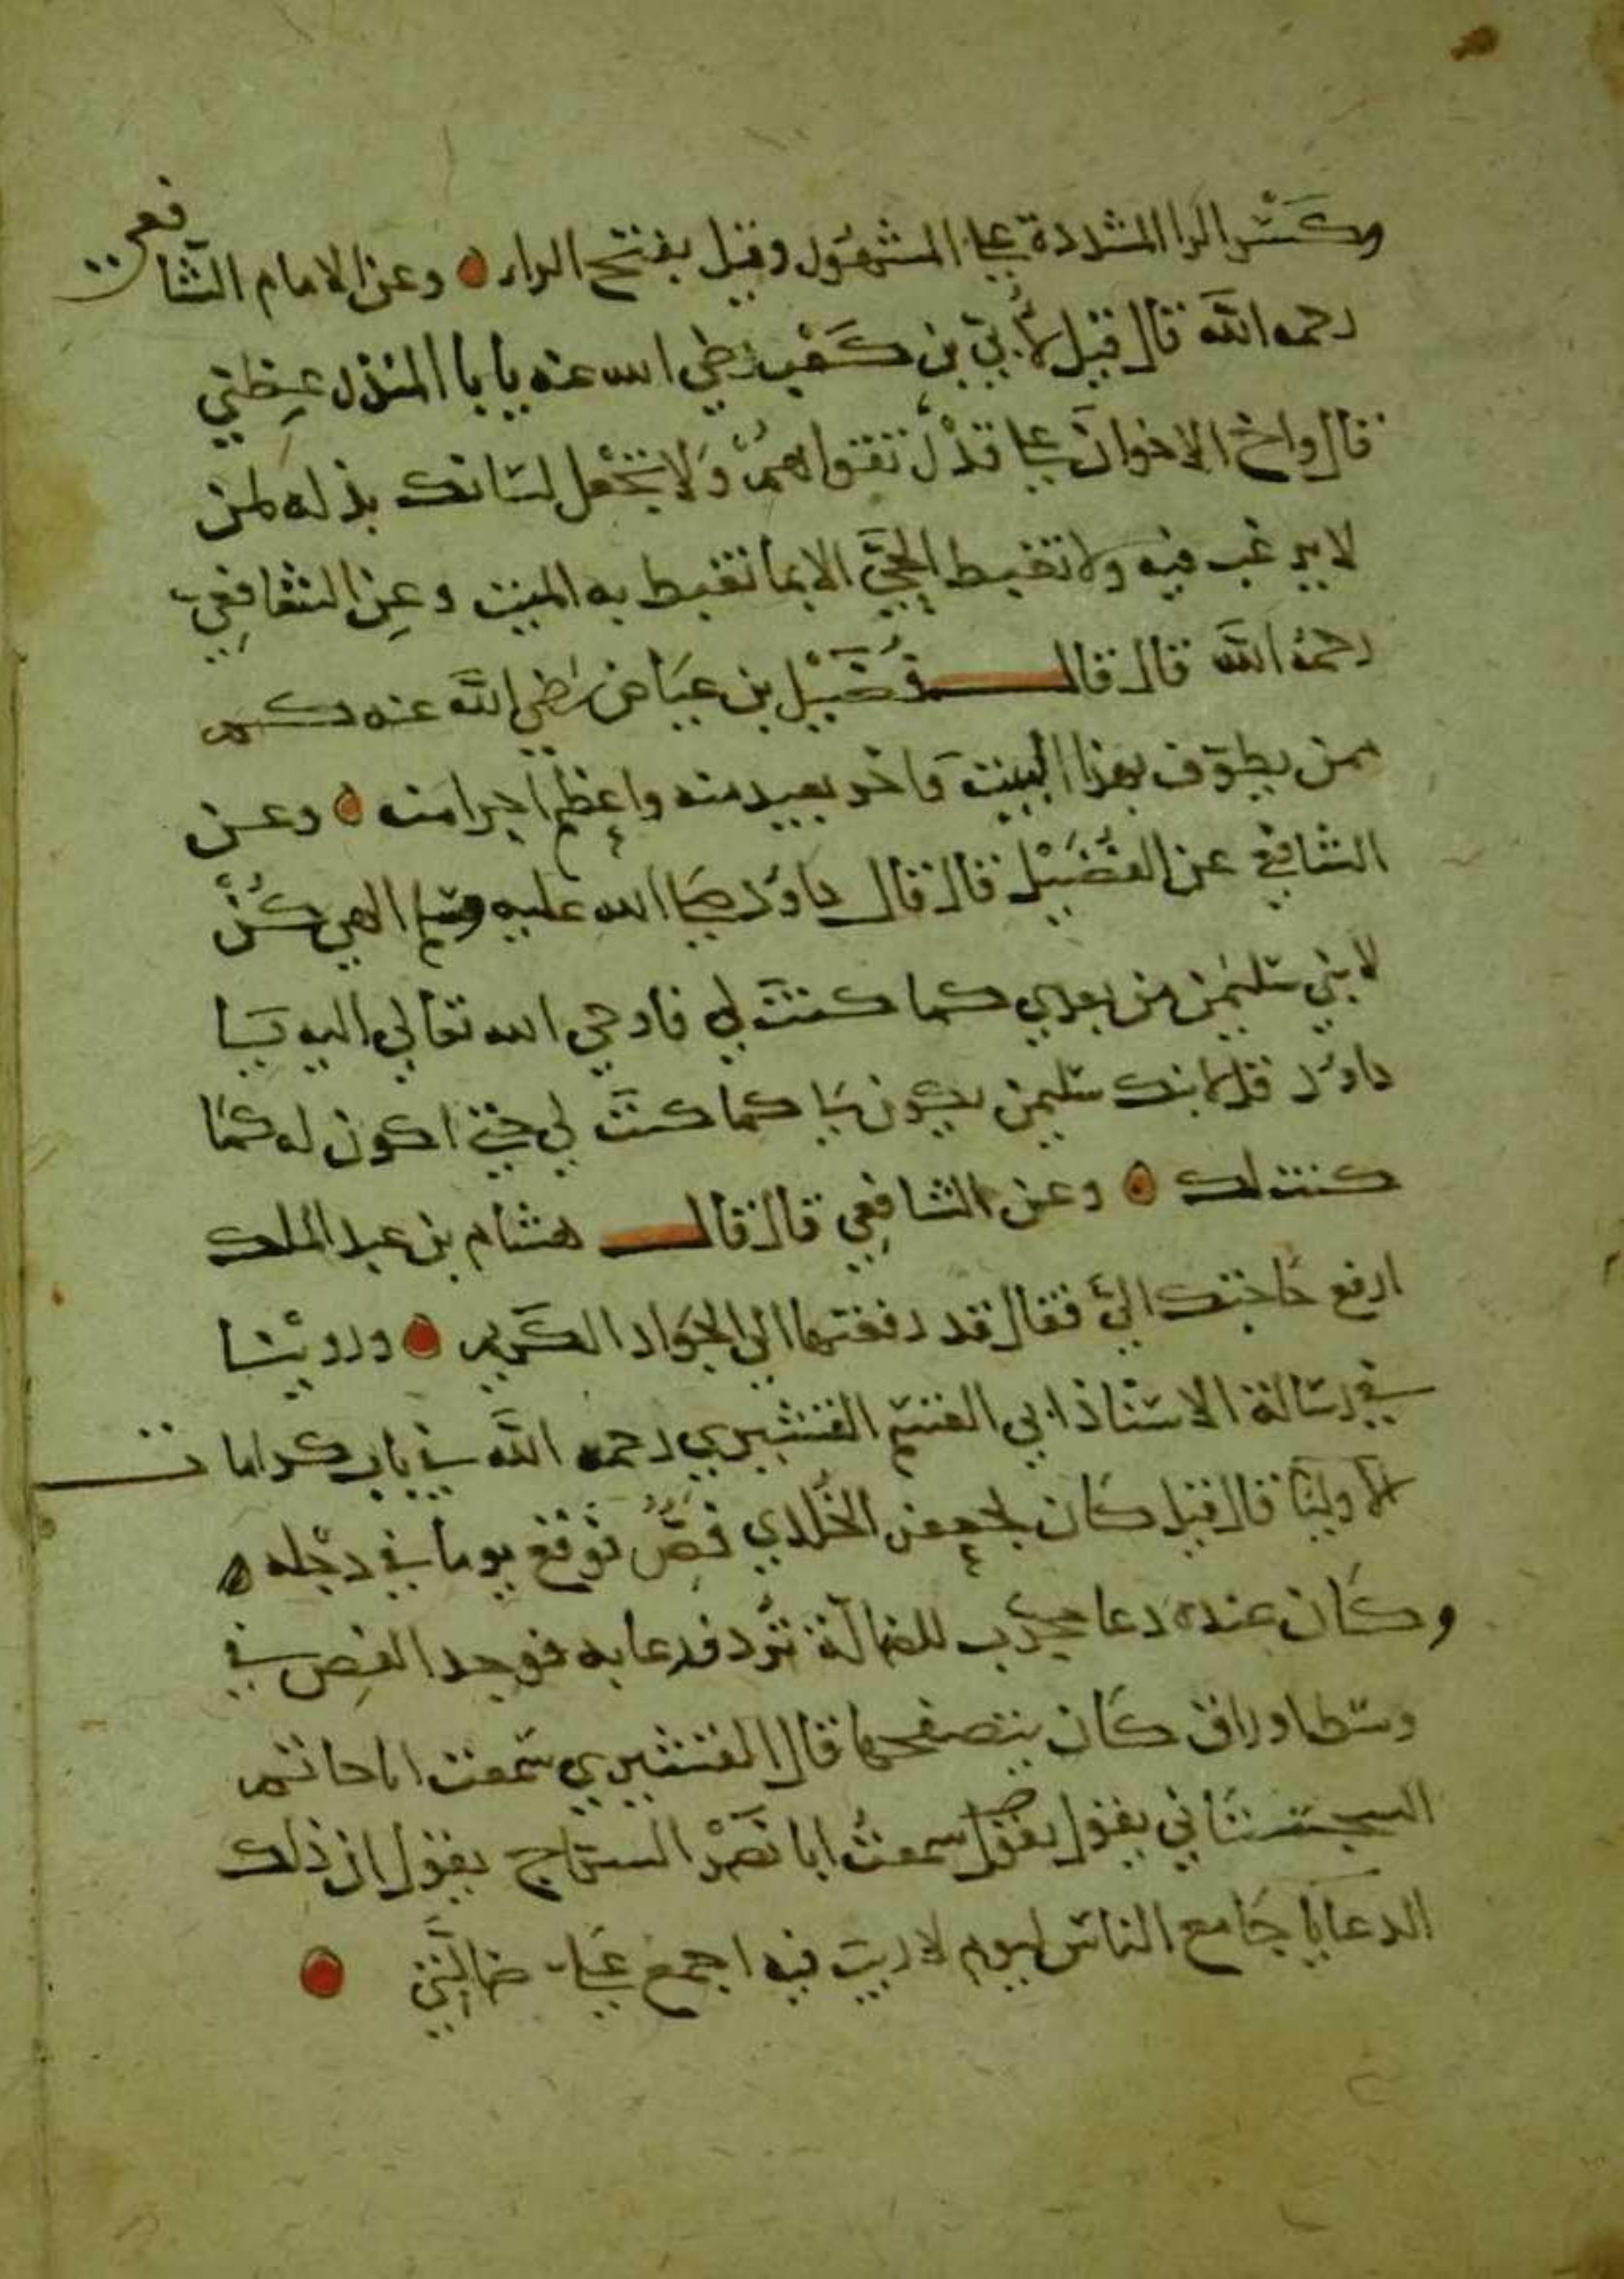 وكسر الرا المشددة على المشهور وقيل بفتح الراء ه وعن الامام الشافعي
رحمه الله قال قيل لأُبي بن كَعْب رضي الله عنه يا با المنذر عِظني
قال واخ الاخوان على قدْر تقواهم وَلا تجْعل لسَانك بذله لمن
لا يرغب فيه ولا تغبط الحيَّ الا بما تغبط به الميت وعن الشافعي
رحمهُ الله قال قال فُضَيْل بن عيَاض رضي الله عنه كم
ممن يطوف بهذا البيت وَاخر بعيد منه واعظم اجرا منه ه وعن
الشافعي عن الفُضَيْل قال قال داوُد صلى الله عليه وسلم الهي كُنْ
لابني سليمن من بعدي كما كنتَ لي فاوحي الله تعالي اليه يَا
داوُد قل لابنك سليمن يكون لي كما كنتَ لي حتى اكون له كمَا
كنت لك ه وعن الشافعي قال قال هشام بن عبد الملك
ارفع حَاجتك اليَّ فقال قد رفعتها الي الجوَاد الكَريم ه وروينا
في رسَالة الاستاذ ابي القسم القشيري رحمه الله في باب كرامات
الأوليَا قال قيل كَان لجعفر الخُلدي فَصٌّ فوَقع يوما في دجْله ه
وكَان عنده دعا مجرّب للضالّة تُرد فدعا به فوجد الفص في
وسَط اوراق كَان يتصفحها قال القشيري سَمعت ابا حاتم
السجستَاني يقول يقول سمعتُ ابا نصْر السرّاج يقول ان ذلك
الدعا يا جَامع الناس ليوم لا ريبَ فيه اجمع عَلي ضالَّتي ه